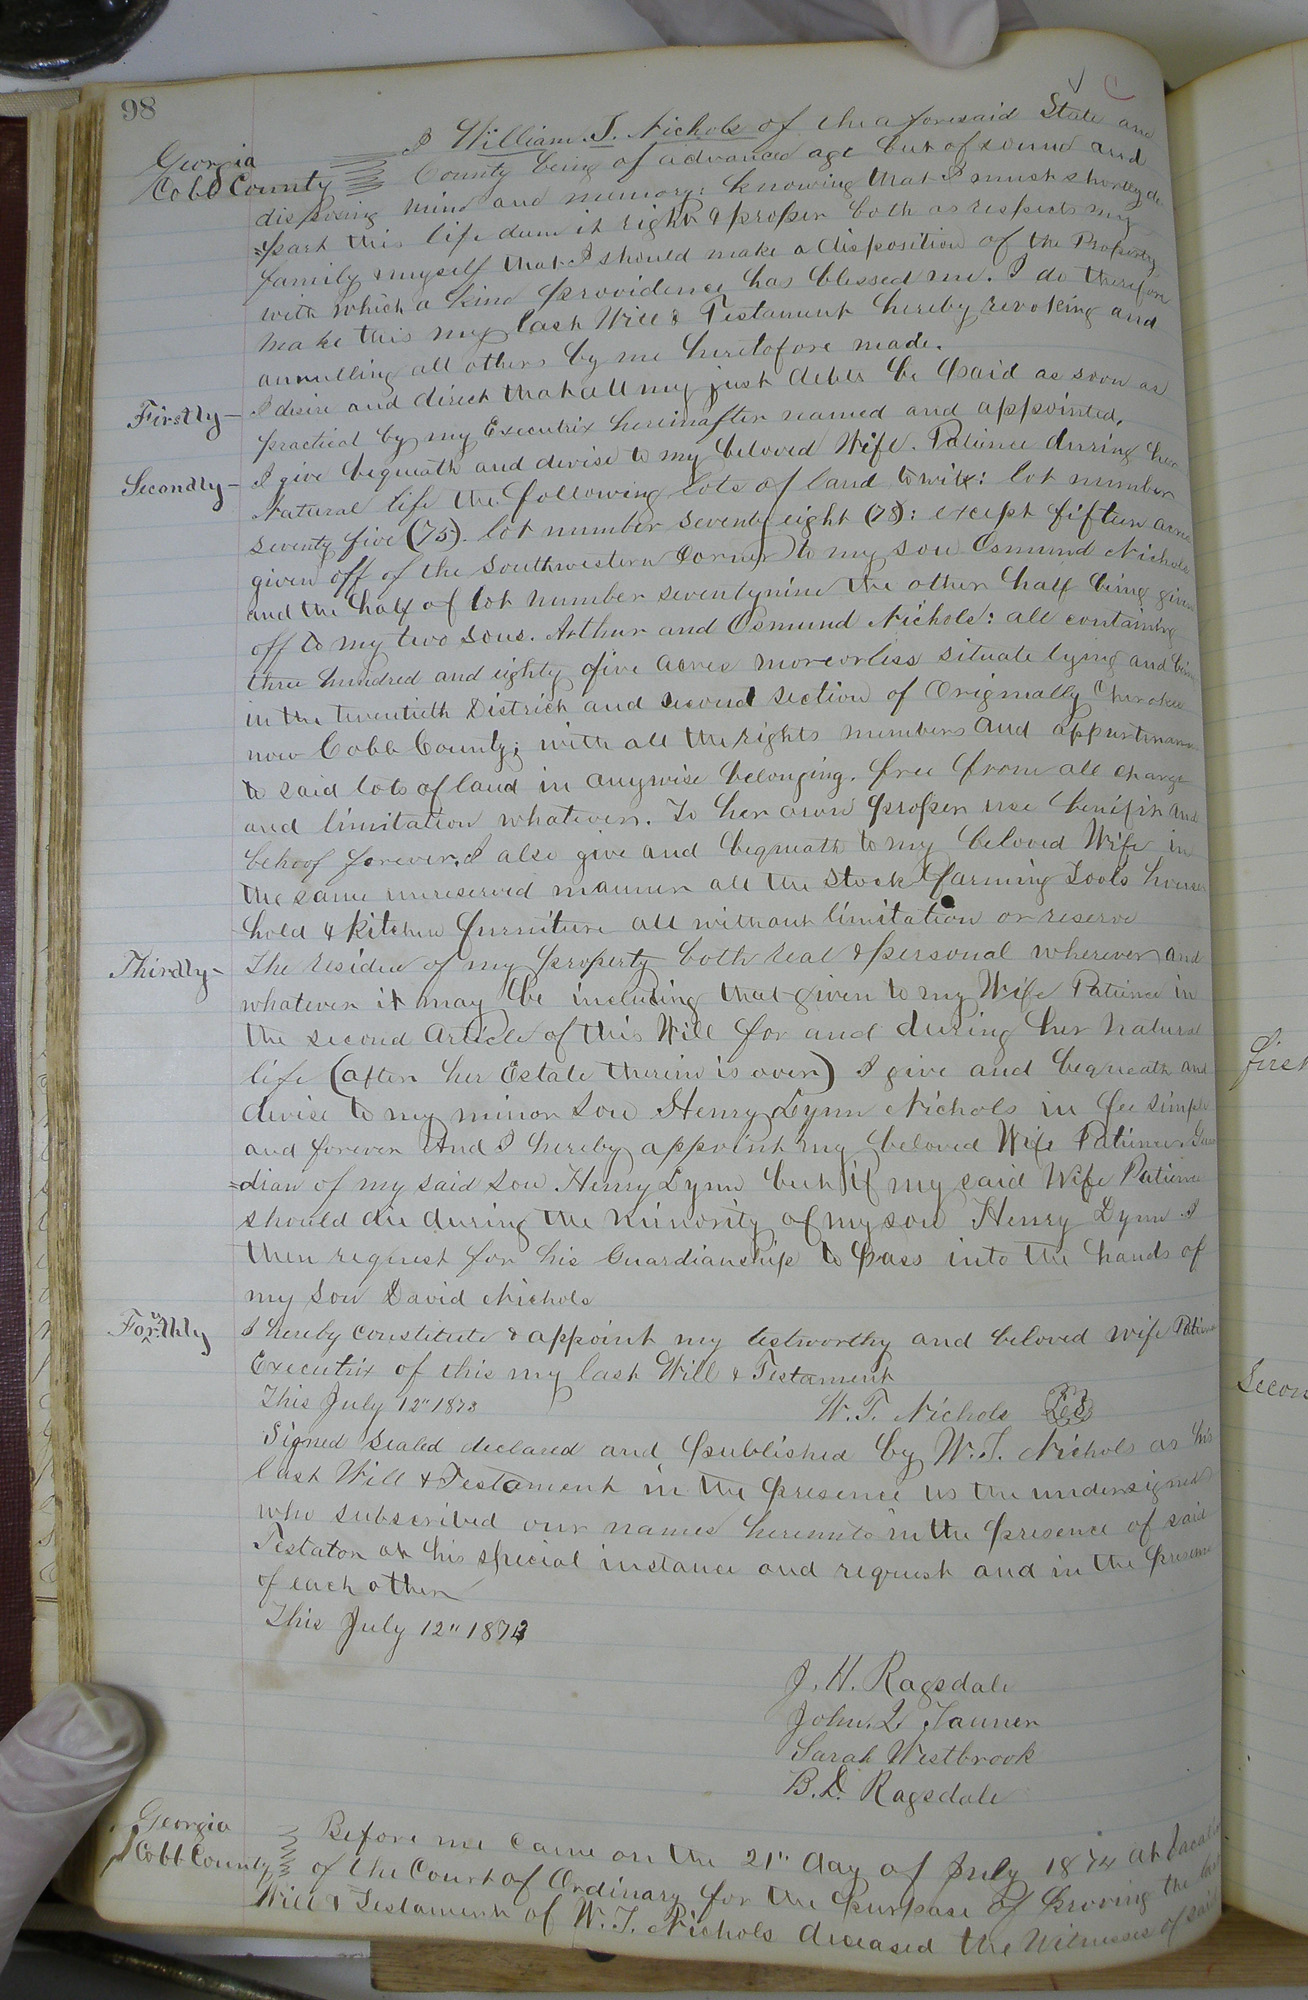 98
I William T. Nichols of the aforesaid State and
Georgia
Cobb County
County being of advanced age but of sound and
disposing mind and memory; knowing that I must shortly de
=part this life deem it right & proper both as respects my
family & myself that I should make a disposition of the Property
with which a kind providence has blessed me. I do therefore
make this my last Will & Testament hereby revoking and
annulling all others by me heretofore made.
Firstly— I desire and direct that all my just debts be paid as soon as
practical by my Executrix hereinafter named and appointed.
Secondly— I give bequeath and devise to my beloved Wife. Patience during her
Natural life the following lots of land towit: lot number
seventy five (75). lot number seventy eight (78): except fifteen acres
given off of the Southwestern Corner to my son Osmund Nichols
and the half of lot number seventynine the other half being given
off to my two sons. Arthur and Osmund Nichols: all containing
three hundred and eighty five acres moreorless situate lying and being
in the twentieth District and second section of Originally Cherokee
now Cobb County; with all the rights members and appurtenances
to said lots of land in anywise belonging. free from all charge
and limitation whatever. To her own proper use benifit and
behoof forever. I also give and bequeath to my beloved Wife in
the same unreserved manner all the Stock farming Tools house
hold & kitchen furniture all without limitation or reserve
Thirdly— The residue of my property both real & personal wherever and
whatever it may be including that given to my Wife Patience in
the second Article of this Will for and during her natural
life (after her Estate therein is over) I give and bequeath and
devise to my minor Son Henry Lynn Nichols in fee simple
and forever And I hereby appoint my beloved Wife Patience Guar
=dian of my said son Henry Lynn but if my said Wife Patience
should die during the minority of my son Henry Lynn I
then request for his Guardianship to pass into the hands of
my Son David Nichols
Fourthly I hereby constitute & appoint my testworthy and beloved wife Patience
Executrix of this my last Will & Testament
This July 12" 1873 W. T. Nichols
Signed Sealed declared and published by W. T. Nichols as his
last Will & Testament in the presence us the undersigned
who subscribed our names hereunto in the presence of said
Testator at his special instance and request and in the presence
of each other
This July 12" 1873
J. H. Ragsdale
John. Q Tanner
Sarah Westbrook
B. D. Ragsdale
Georgia
Cobb County
Before me came on the 21" day of July 1874 at
of the Court of Ordinary for the purpose of proving the last
Will & Testament of W. T. Nichols deceased the Witnesses of said
first
Secon